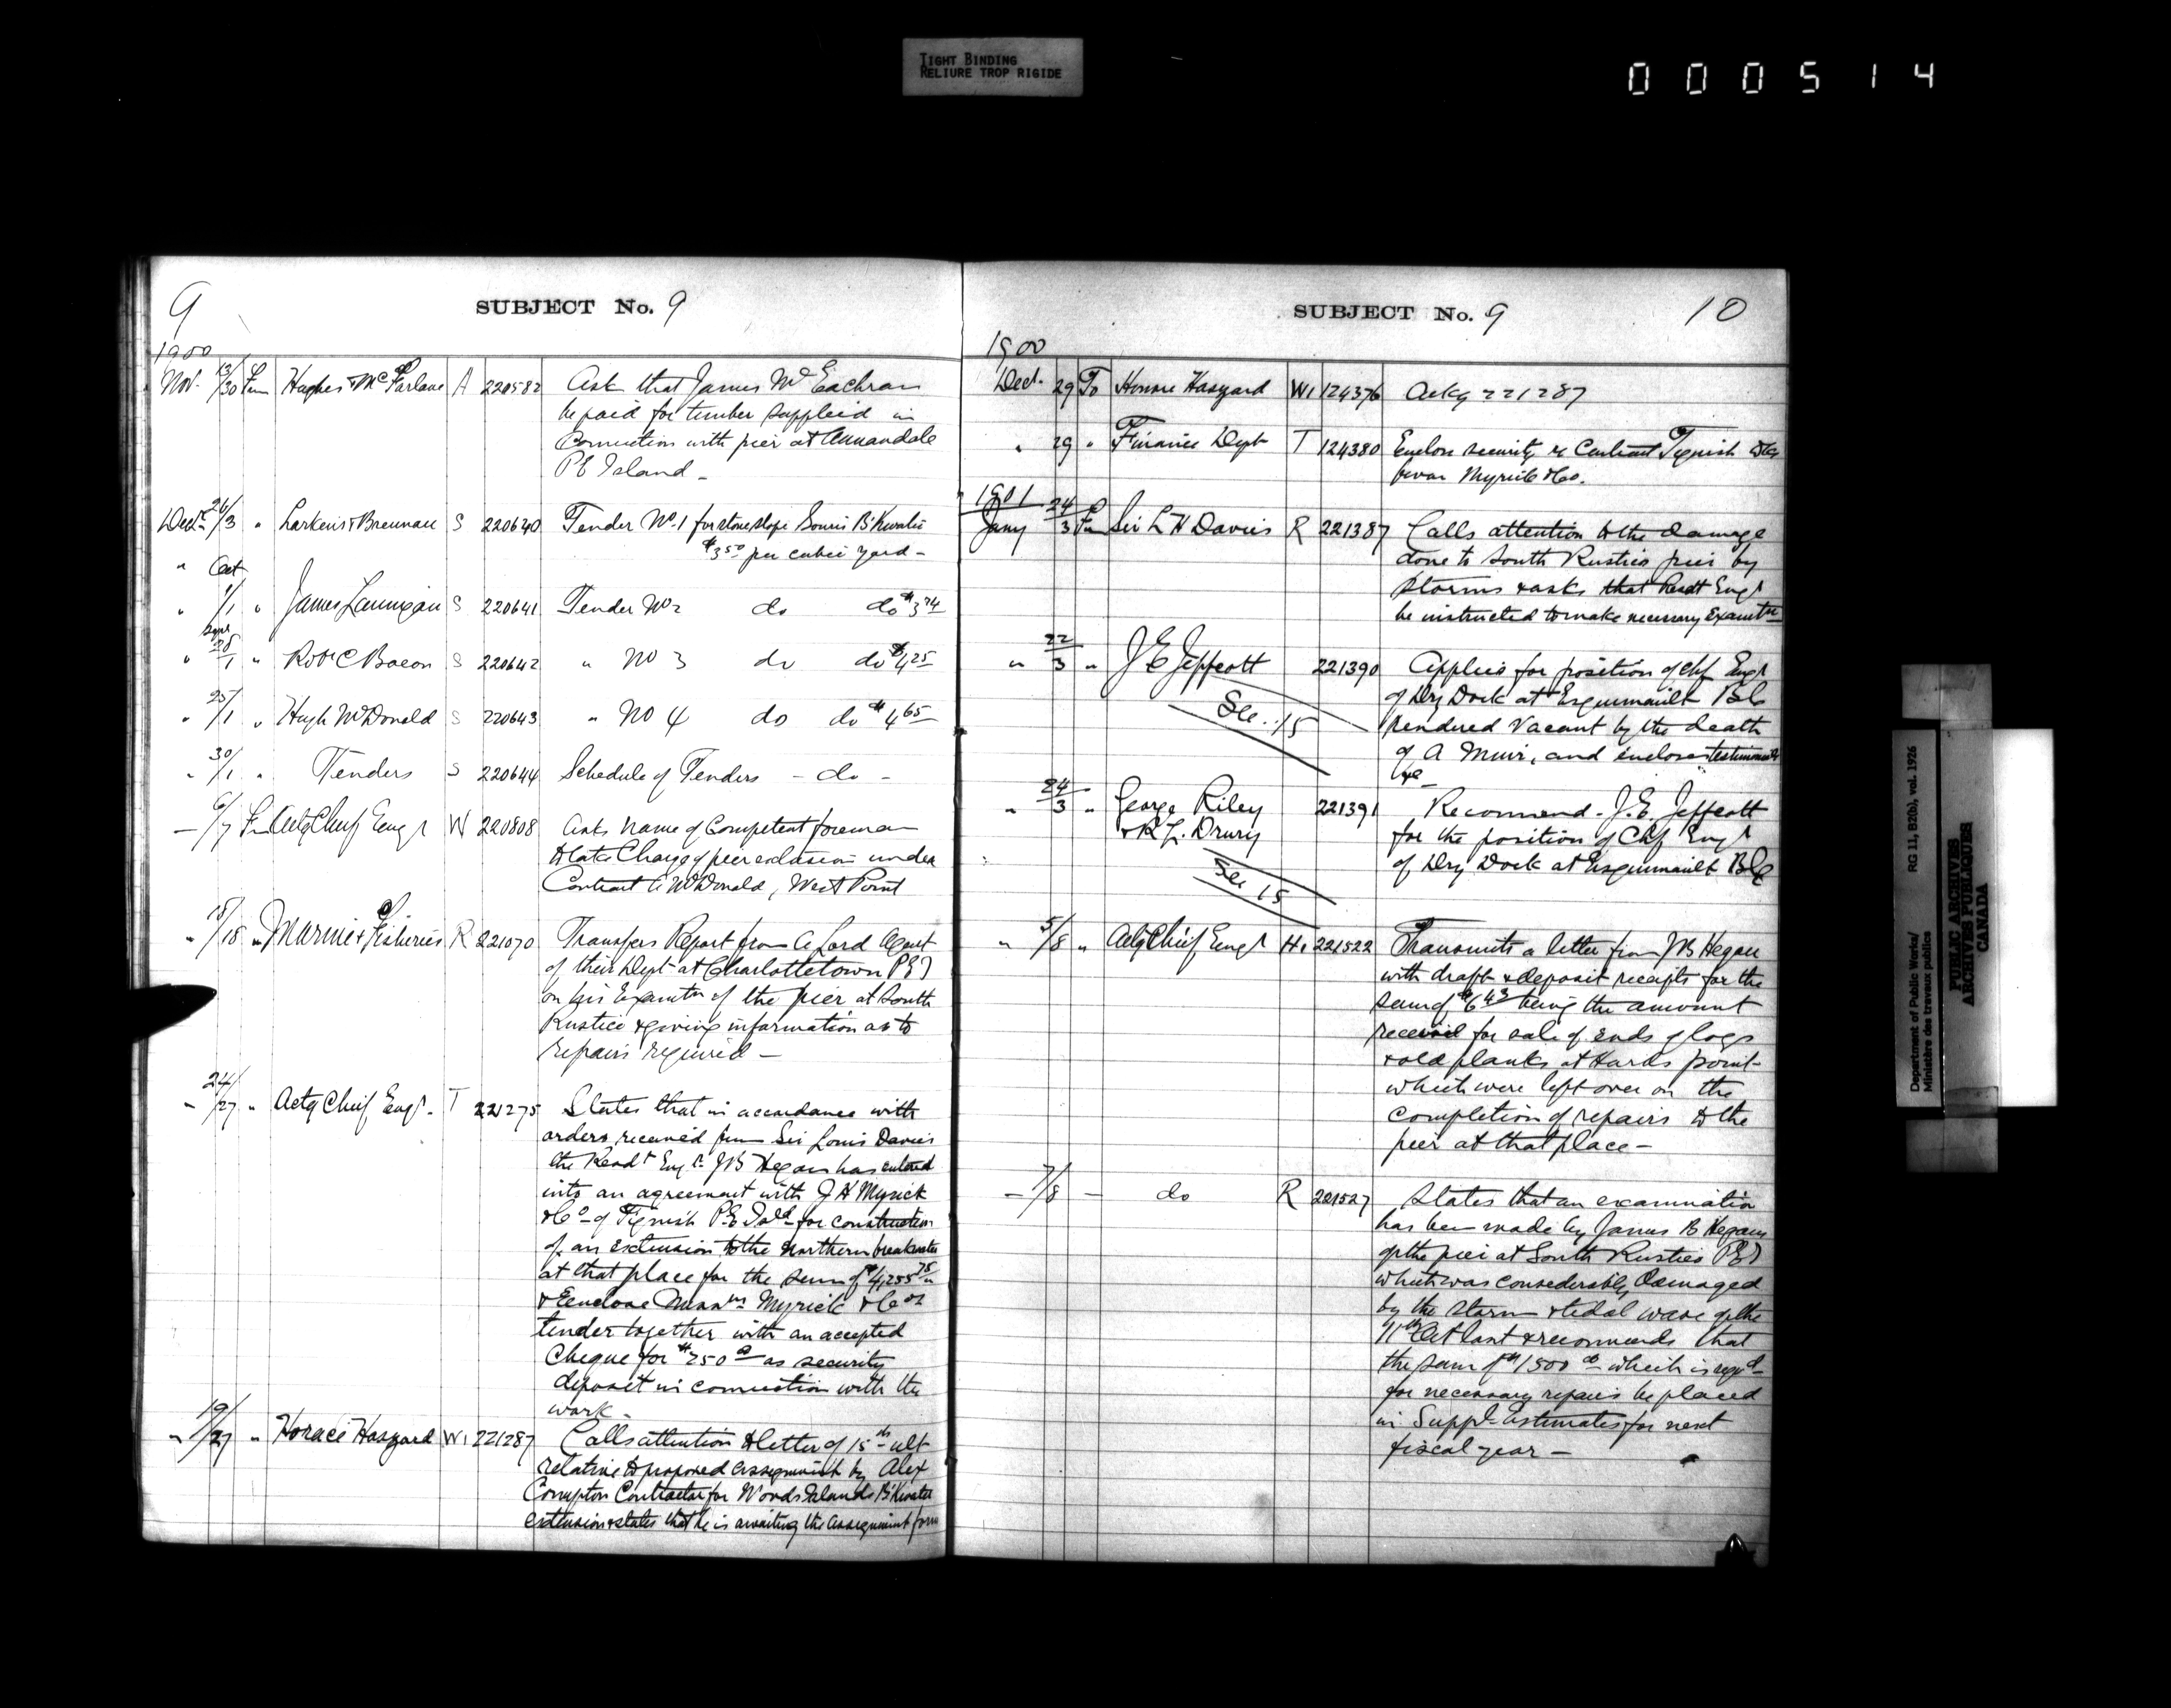 TIGHT BINDING
RELIURE TROP RIGIDE
000514
9
SUBJECT No. 9
1900
Nov. 13/30 Fm Hughes & McFarlane A 220582 Ask that James McEachran
be paid for timber supplied in
Connection with pier at Annandale
PE Island -
Decr 26/3 " Larkin & Brennan S 220640 Tender No. 1 for stone slope Souris B'Kwater
$3.50 per cubic yard -
" Oct
" 1/1 " James Lannigan S 220641 Tender No 2 do do $3.74
Sept
" 28/1 " Robt C Bacon S 220642 " No 3 do do $4.25
" 25/1 " Hugh McDonald S 220643 " No 4 do do $4.65
" 30/1 " Tenders S 220644 Schedule of Tenders - do -
- 6/7 Fm Actg Chief Engr W 220808 Asks name of Competent foreman
to take Charge of pier extension under
Contract A McDonald, West Point
" 15/18 " Marine & Fisheries R 221070 Transfers Report from A Lord Agent
of their Dept at Charlottetown PEI
on his Examtn of the pier at South
Rustico & giving information as to
repairs required -
" 24/27 " Actg Chief Engr. T 221275 States that in accordance with
orders received from Sir Louis Davies
the Resdt Engr JB Hegan has entered
into an agreement with J H Myrick
& Co of Tignish P.E Isld for construction
of an extension to the northern breakwater
at that place for the sum of $4,255.75
& Enclose Messrs Myrick & Cos
tender together with an accepted
Cheque for $250.00 as security
deposit in connection with the
work -
" 19/27 " Horace Haszard W1 221287 Calls attention to letter of 15th ult
relative to proposed assignment by Alex
Compton Contractor for Woods Islands B'Kwater
extension & states that he is awaiting the assignment form
SUBJECT No. 9
10
1900
Decr. 29 To Horace Haszard W1 124376 Ackg 221287
" 29 " Finance Dept T 124380 Enclose security re Contract Tignish Wks
Myrick & Co.
1901
Jany 24/3 Fm Sir L H Davies R 221387 Calls attention to the damage
done to South Rustico pier by
storms & asks that Resdt Engr
be instructed to make necessary Examtn
" 22/3 " J E Jeffcott 221390 Applies for position of Chf Engr
See. 15
of Dry Dock at Esquimault BC
rendered Vacant by the death
of A Muir, and encloses testimonials
&c
" 24/3 " George Riley 221391 Recommend. J.E. Jeffcott
& R L. Drury
for the position of Chf Engr
See 15
of Dry Dock at Esquimault BC
" 5/8 " Actg Chief Engr H1 221522 Transmits a letter from JB Hegan
with draft & deposit receipts for the
sum of $6.43 being the amount
received for sale of ends of logs
& old planks at Hurds point
which were left over on the
completion of repairs to the
pier at that place -
- 7/8 - do R 221527 States that an examination
has been made by James B Hegan
of the pier at South Rustico PEI
which was considerably Damaged
by the storm & tidal wave of the
11th Oct last & recommends that
the sum of $1500.00 which is reqd
for necessary repairs be placed
in Suppl. Estimates for next
fiscal year -
Department of Public Works/
Ministère des travaux publics
RG 11, B2(b), vol. 1926
PUBLIC ARCHIVES
ARCHIVES PUBLIQUES
CANADA